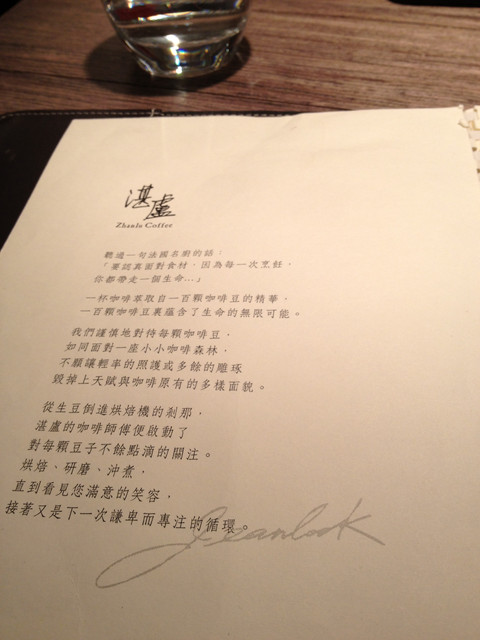 湛盧
Zhanlu Coffee
聽過一句法國名廚的話：
「要認真面對食材，因為每一次烹飪，
你都帶走一個生命…」
一杯咖啡萃取自一百顆咖啡豆的精華，
一百顆咖啡豆裏蘊含了生命的無限可能。
我們謹慎地對待每顆咖啡豆，
如同面對一座小小咖啡森林，
不願讓輕率的照護或多餘的雕琢
毀掉上天賦與咖啡原有的多樣面貌。
從生豆倒進烘焙機的剎那，
湛盧的咖啡師傅便啟動了
對每顆豆子不餘點滴的關注。
烘焙、研磨、沖煮，
直到看見您滿意的笑容，
接著又是下一次謙卑而專注的循環。
Jeanlook